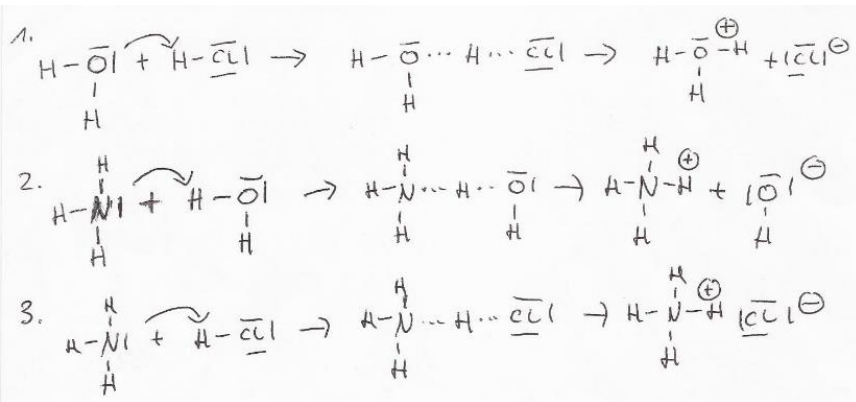 1.
H-O̅| + H-C̲l̅| → H-O̅···H···C̲l̅| → H-O̅-H ⊕ + |C̲l̅|⊖
| | |
H H H
H H H
2. | | |
H-N| + H-O̅| → H-N···H··O̅| → H-N-H ⊕ + |O̅|⊖
| | | | | |
H H H H H H
H H H
3. | | |
H-N| + H-C̲l̅| → H-N···H··C̲l̅| → H-N-H ⊕ |C̲l̅|⊖
| | |
H H H